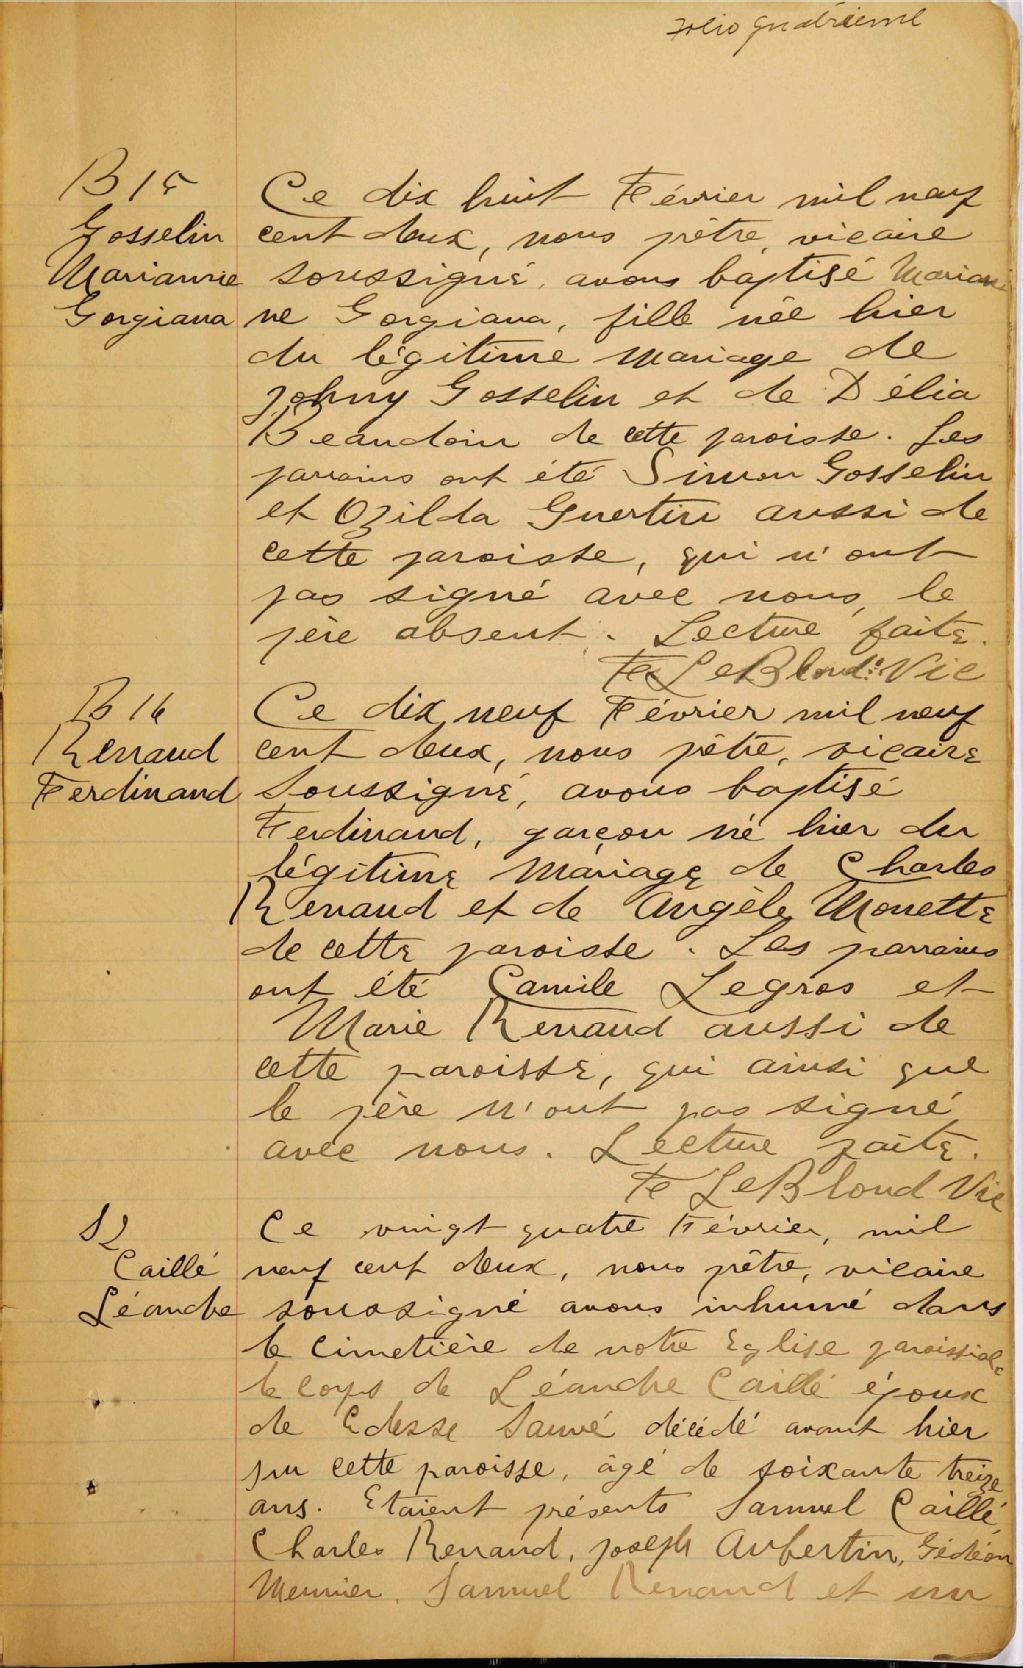 Folio quatrième
B 15
Gosselin
Marianne
Gorgiana
Ce dix huit Février mil neuf
cent deux, nous prêtre, vicaire
soussigné, avons baptisé Marian
ne Gorgiana, fille née hier
du légitime mariage de
Johny Gosselin et de Délia
Beaudoin de cette paroisse. Les
parrains ont été Simon Gosselin
et Ozilda Guertin aussi de
cette paroisse, qui n'ont
pas signé avec nous, le
père absent. Lecture faite.
LeBlond Vic
B 16
Renaud
Ferdinand
Ce dix neuf Février mil neuf
cent deux, nous pêtre, vicaire
soussigné, avons baptisé
Ferdinand, garçon né hier du
légitime mariage de Charles
Renaud et de Angèle Monette
de cette paroisse. Les parrains
ont été Camile Legros et
Marie Renaud aussi de
cette paroisse, qui ainsi que
le père n'ont pas signé
avec nous. Lecture faite.
LeBlond Vic
S2
Caillé
Léandre
Ce vingt quatre Février, mil
neuf cent deux, nous prêtre, vicaire
soussigné avons inhumé dans
le cimetière de notre Eglise paroissiale
le corps de Léandre Caillé époux
de Edesse Sauvé décédé avant hier
sur cette paroisse, âgé de soixante treize
ans. Etaient présents Samuel Caillé,
Charles Renaud, Joseph Aubertin, Gédéon
Meunier, Samuel Renaud et un